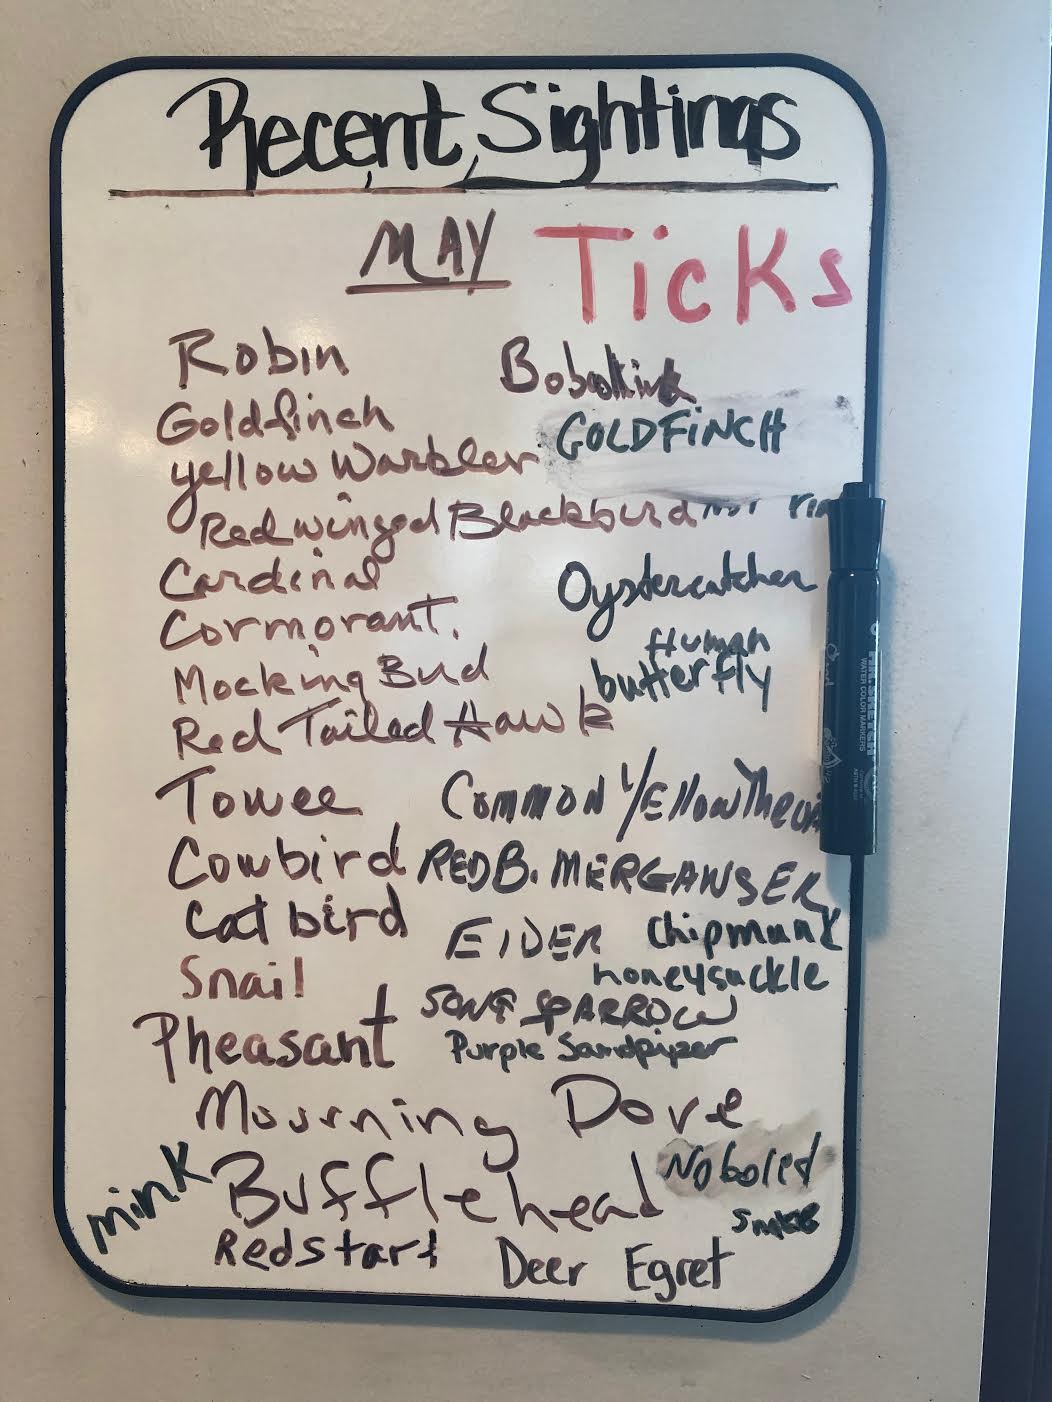 Recent Sightings
MAY Ticks
Robin
Goldfinch
yellow Warbler
Redwinged Blackbird
Cardinal
Cormorant.
Mocking Bird
Red Tailed Hawk
Towee
Cowbird
Cat bird
Snail
Pheasant
Mourning Dove
Bufflehead
mink
Redstart
Deer Egret
GOLDFINCH
Oystercatcher
Human
butterfly
COMMON YEllow
RED B. MERGANSER
EIDER Chipmunk
honeysuckle
SONG SPARROW
Purple Sandpiper
MR. SKETCH
WATER COLOR MARKERS